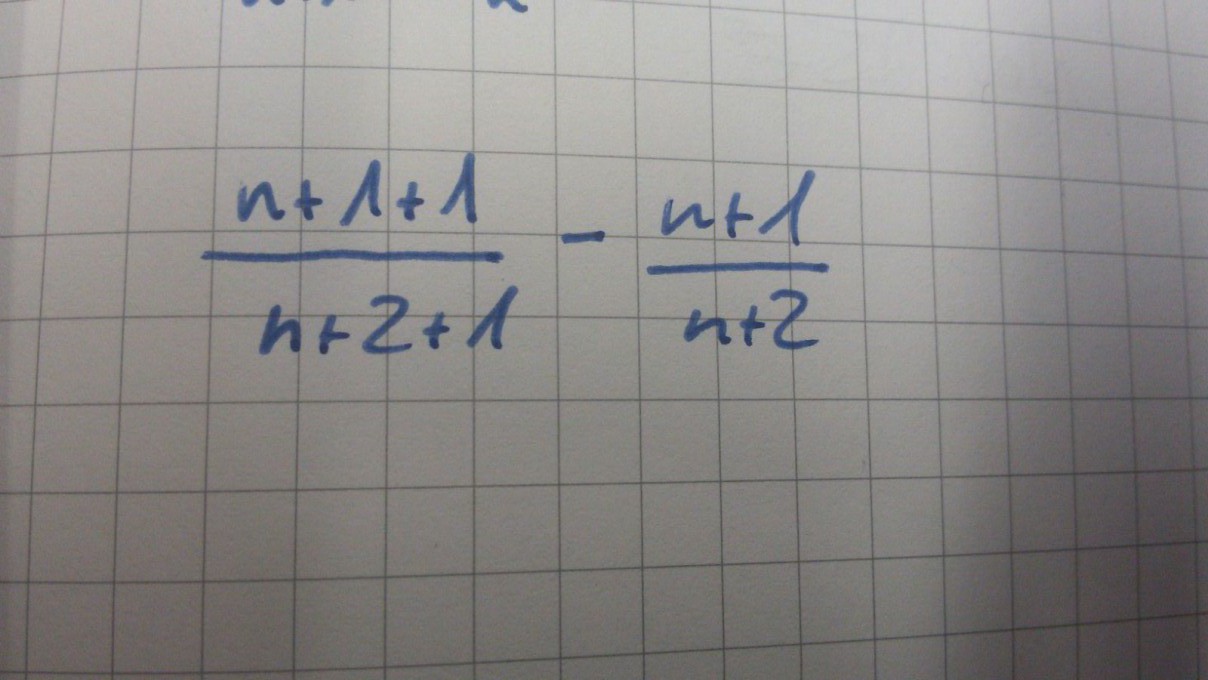 n+1+1 / n+2+1 - n+1 / n+2